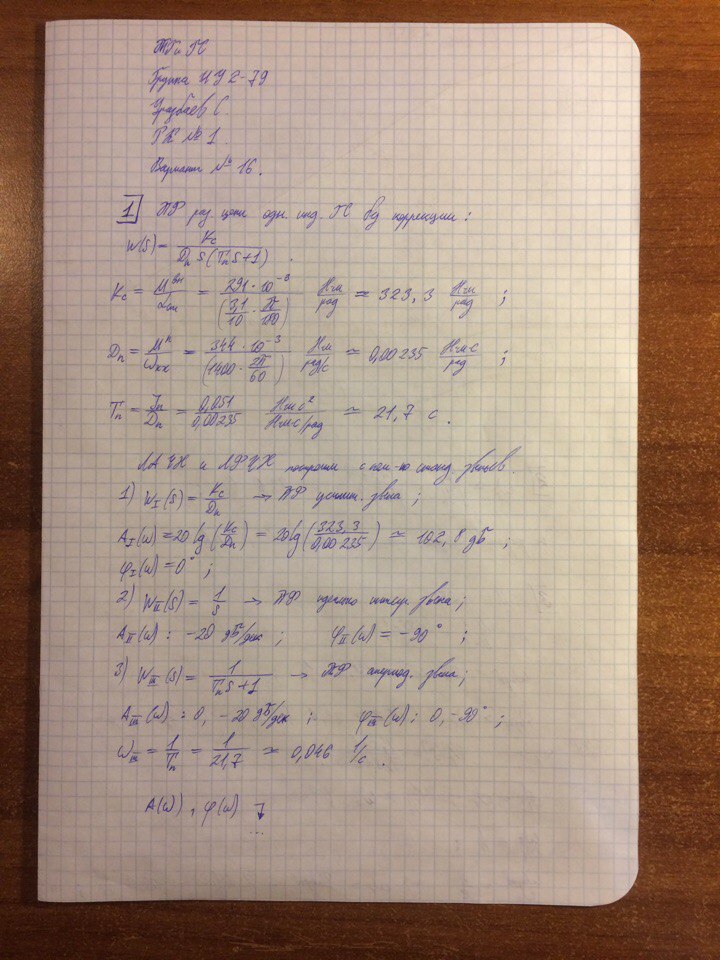 ТГиГС
Группа ИУ2-79
Уразбаев С.
РК №1
Вариант №16.
1 ПФ раз. цепи одн. инд. ГС без коррекции:
W(s) = Kc / (Dп s (Tп s+1)) .
Kc = Mвн / αдм = 291·10⁻³ / (3,1/10 · π/180) Н·м/рад ≃ 323,3 Н·м/рад ;
Dп = Mп / ωхх = 344·10⁻³ / (1400 · 2π/60) Н·м / рад/с ≃ 0,00235 Н·м·с/рад ;
Tп = Jп / Dп = 0,051 / 0,00235 Н·м·с² / Н·м·с/рад ≃ 21,7 с .
ЛАЧХ и ЛФЧХ построим с пом-ю станд. звеньев.
1) W_I(s) = Kc/Dп → ПФ усилит. звена ;
A_I(ω) = 20lg(Kc/Dп) = 20lg(323,3/0,00235) ≃ 102,8 дБ ;
φ_I(ω) = 0° ;
2) W_II(s) = 1/s → ПФ идеально интегр. звена ;
A_II(ω) : -20 дБ/дек ; φ_II(ω) = -90° ;
3) W_III(s) = 1/(Tп s+1) → ПФ апериод. звена ;
A_III(ω) : 0, -20 дБ/дек ; φ_III(ω) : 0, -90° ;
ω_III = 1/Tп = 1/21,7 ≃ 0,046 1/с .
A(ω), φ(ω) ↓
...